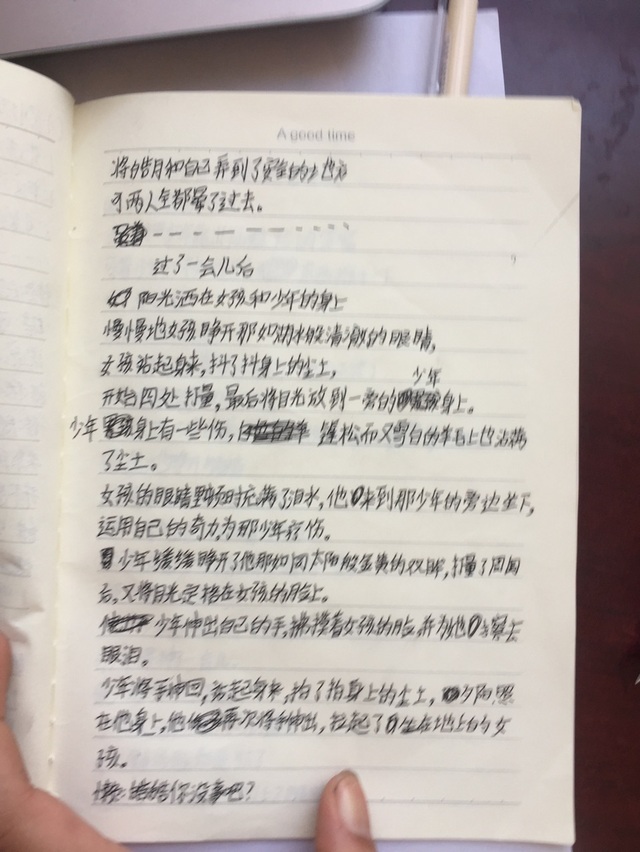 A good time
将皓月和自己弄到了安全的地方
可两人全都晕了过去。
过了一会儿后
阳光洒在女孩和少年的身上
慢慢地女孩睁开那如湖水般清澈的眼睛,
女孩站起身来,抖了抖身上的尘土,
少年
开始四处打量,最后将目光放到一旁的身上。
少年身上有一些伤,蓬松而又雪白的羊毛上也沾满
了尘土。
女孩的眼睛充满了泪水,他来到那少年的旁边坐下,
运用自己的奇力为那少年疗伤。
少年缓缓睁开了他那如同太阳般金黄的双眸,打量了周围
后,又将目光定格在女孩的脸上。
少年伸出自己的手,抚摸着女孩的脸,并为她擦去
眼泪。
少年将手伸回,站起身来,拍了拍身上的尘土,阳照
在他身上,他再次将手伸出,拉起了坐在地上的女
孩。
皓皓你没事吧?